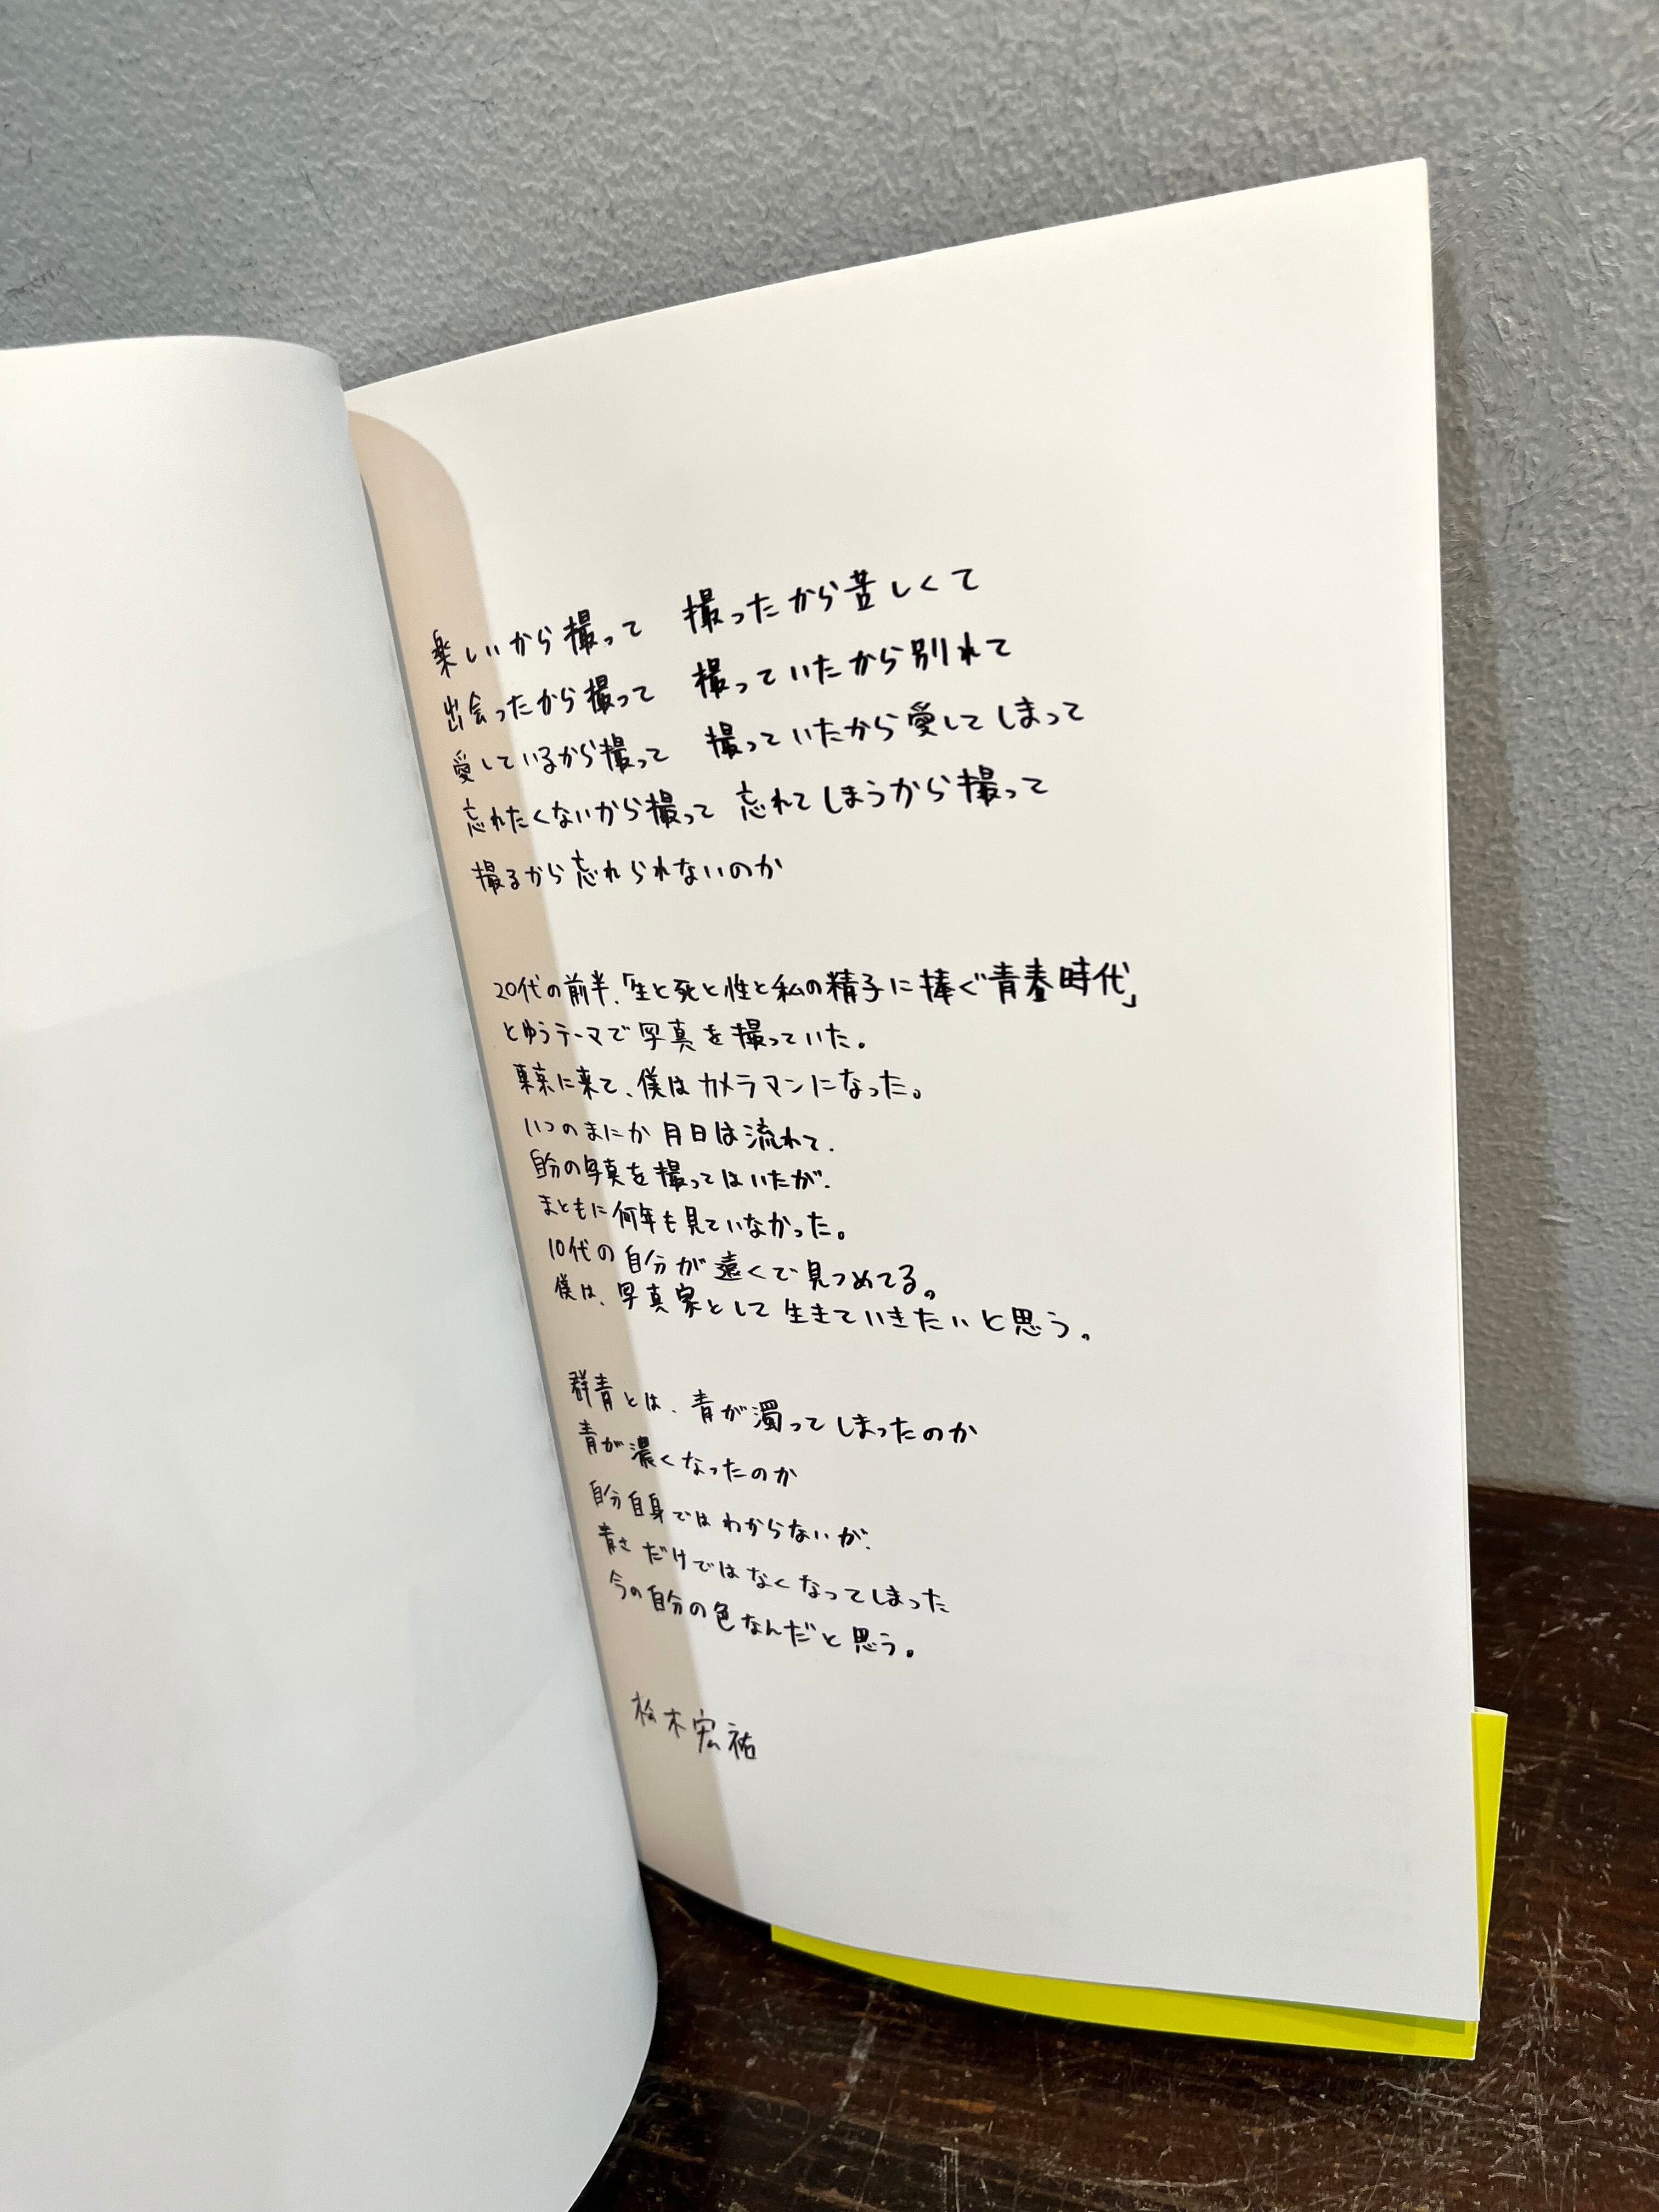 楽しいから撮って　撮ったから苦しくて
出会ったから撮って　撮っていたから別れて
愛しているから撮って　撮っていたから愛してしまって
忘れたくないから撮って　忘れてしまうから撮って
撮るから忘れられないのか
20代の前半、「生と死と性と私の精子に捧ぐ青春時代」
とゆうテーマで写真を撮っていた。
東京に来て、僕はカメラマンになった。
いつのまにか月日は流れて、
自分の写真を撮ってはいたが、
まともに何年も見ていなかった。
10代の自分が遠くで見つめてる。
僕は、写真家として生きていきたいと思う。
群青とは、青が濁ってしまったのか
青が濃くなったのか
自分自身ではわからないが、
青さだけではなくなってしまった
今の自分の色なんだと思う。
桧木宏祐